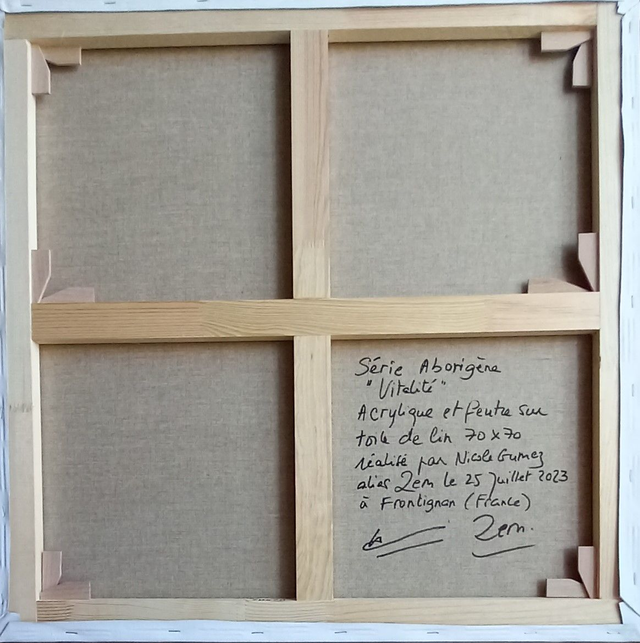 Série Aborigène
"Vitalité"
Acrylique et feutre sur
toile de lin 70x70
réalisé par Nicole Gumez
alias Zem le 25 Juillet 2023
à Frontignan (France)
Zem.